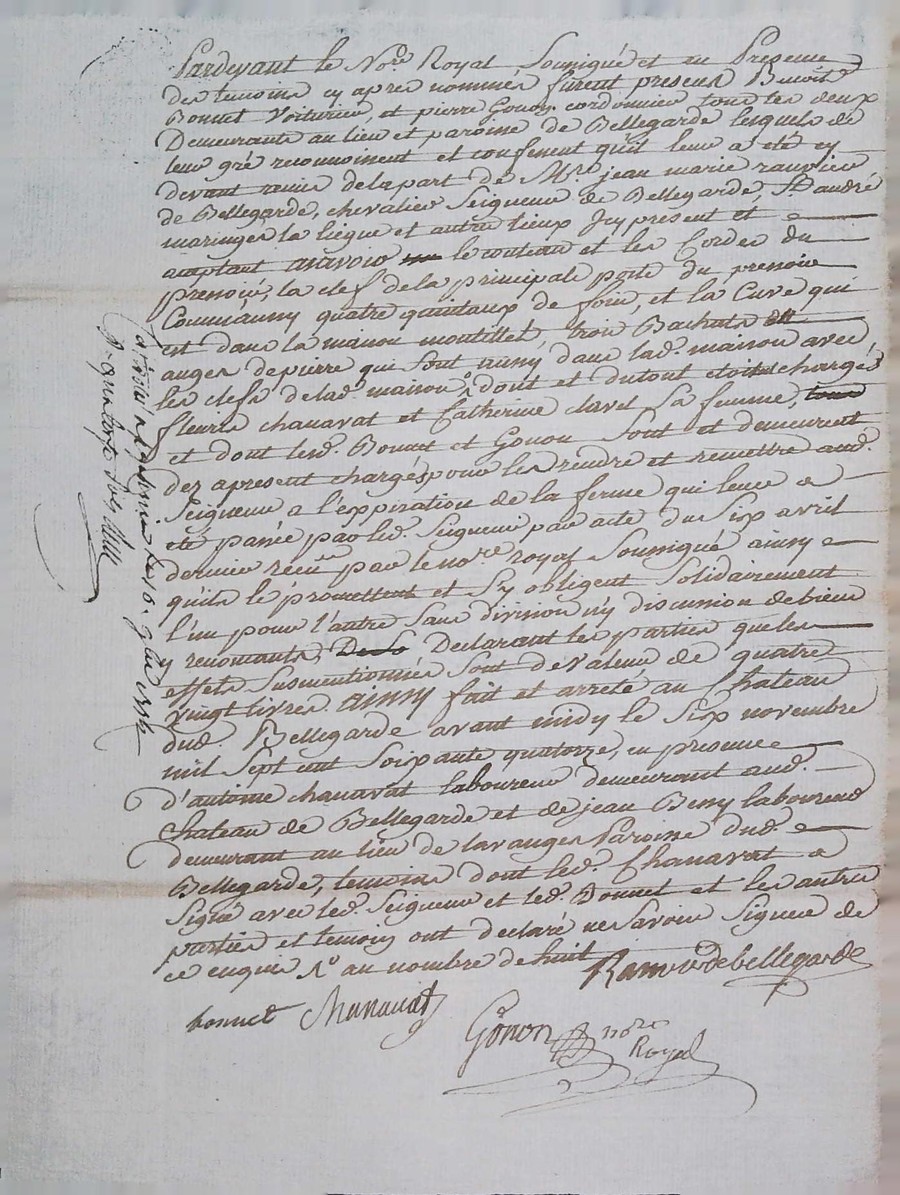 Pardevant le No.re Royal Soussigné et en Presence
des temoins cy apres nommés furent presens Benoit
Bonnet Voiturier, et pierre Gonon cordonnier tous les deux
Demeurants au lieu et paroisse de Bellegarde lesquels de
leur gré reconnoissent et confessent qu'il leur a eté cy
devant remis de la part de M.re jean marie ranvier
de Bellegarde, chevalier Seigneur de Bellegarde, St andré
maringes la liegue et autres lieux Icy present et
acceptant assavoir le couteau et les Cordes du
pressoir, la clef de la principale porte du pressoir
Commun, quatre quintaux de foin, et la Cuve qui
est dans la maison montillet, trois Bachats
auges de pierre qui sont aussy dans lad.e maison avec
les clefs de lad.e maison, dont et du tout etoient chargés
fleuris chanavat et Catherine clavel Sa femme,
et dont lesd. Bonnet et Gonon Sont et demeurent
dez apresent chargés pour les rendre et remettre aud.
Seigneur a l'expiration de la ferme qui leur a
eté passée par led. Seigneur par acte du Six avril
dernier recu par le no.re royal Soussigné ainsy
qu'ils le promettent et s'y obligent Solidairement
l'un pour l'autre Sans division n'y discussion de biens
y renonçants, Declarant les parties que les
effets Susmentionnés sont de valeur de quatre
vingt livres. Ainsy fait et arreté au Chateau
dud. Bellegarde avant midy le Six novembre
mil Sept cent Soixante quatorze, en presence
d'antoine chanavat laboureur demeurant aud.
Chateau de Bellegarde et de jean Beny laboureur
demeurant au lieu de lavanges Paroisse dud.
Bellegarde, temoins dont led. Chanavat a
Signé avec led. Seigneur et led. Bonnet et les autres
parties et temoins ont declaré ne Savoir Signer de
ce enquis R.o au nombre de huit Ranvier de bellegarde
bonnet Chanavat
Gonon no.re
Royal